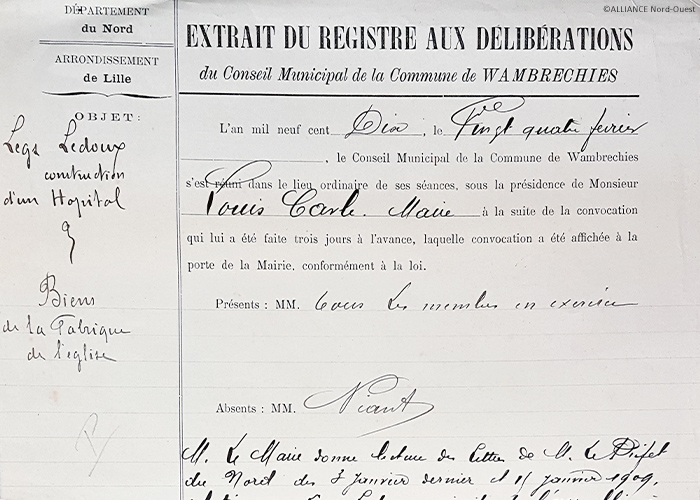 ©ALLIANCE Nord-Ouest
DÉPARTEMENT
du Nord
ARRONDISSEMENT
de Lille
OBJET :
Legs Ledoux
construction
d'un Hopital
Biens
de la Fabrique
de l'église
EXTRAIT DU REGISTRE AUX DÉLIBÉRATIONS
du Conseil Municipal de la Commune de WAMBRECHIES
L'an mil neuf cent Dix, le Vingt quatre février
, le Conseil Municipal de la Commune de Wambrechies
s'est réuni dans le lieu ordinaire de ses séances, sous la présidence de Monsieur
Louis Maire à la suite de la convocation
qui lui a été faite trois jours à l'avance, laquelle convocation a été affichée à la
porte de la Mairie, conformément à la loi.
Présents : MM. tous les membres en exercice
Absents : MM. Néant
M. Le Maire donne lecture des lettres de M. Le Préfet
du Nord des janvier dernier et janvier 1909.